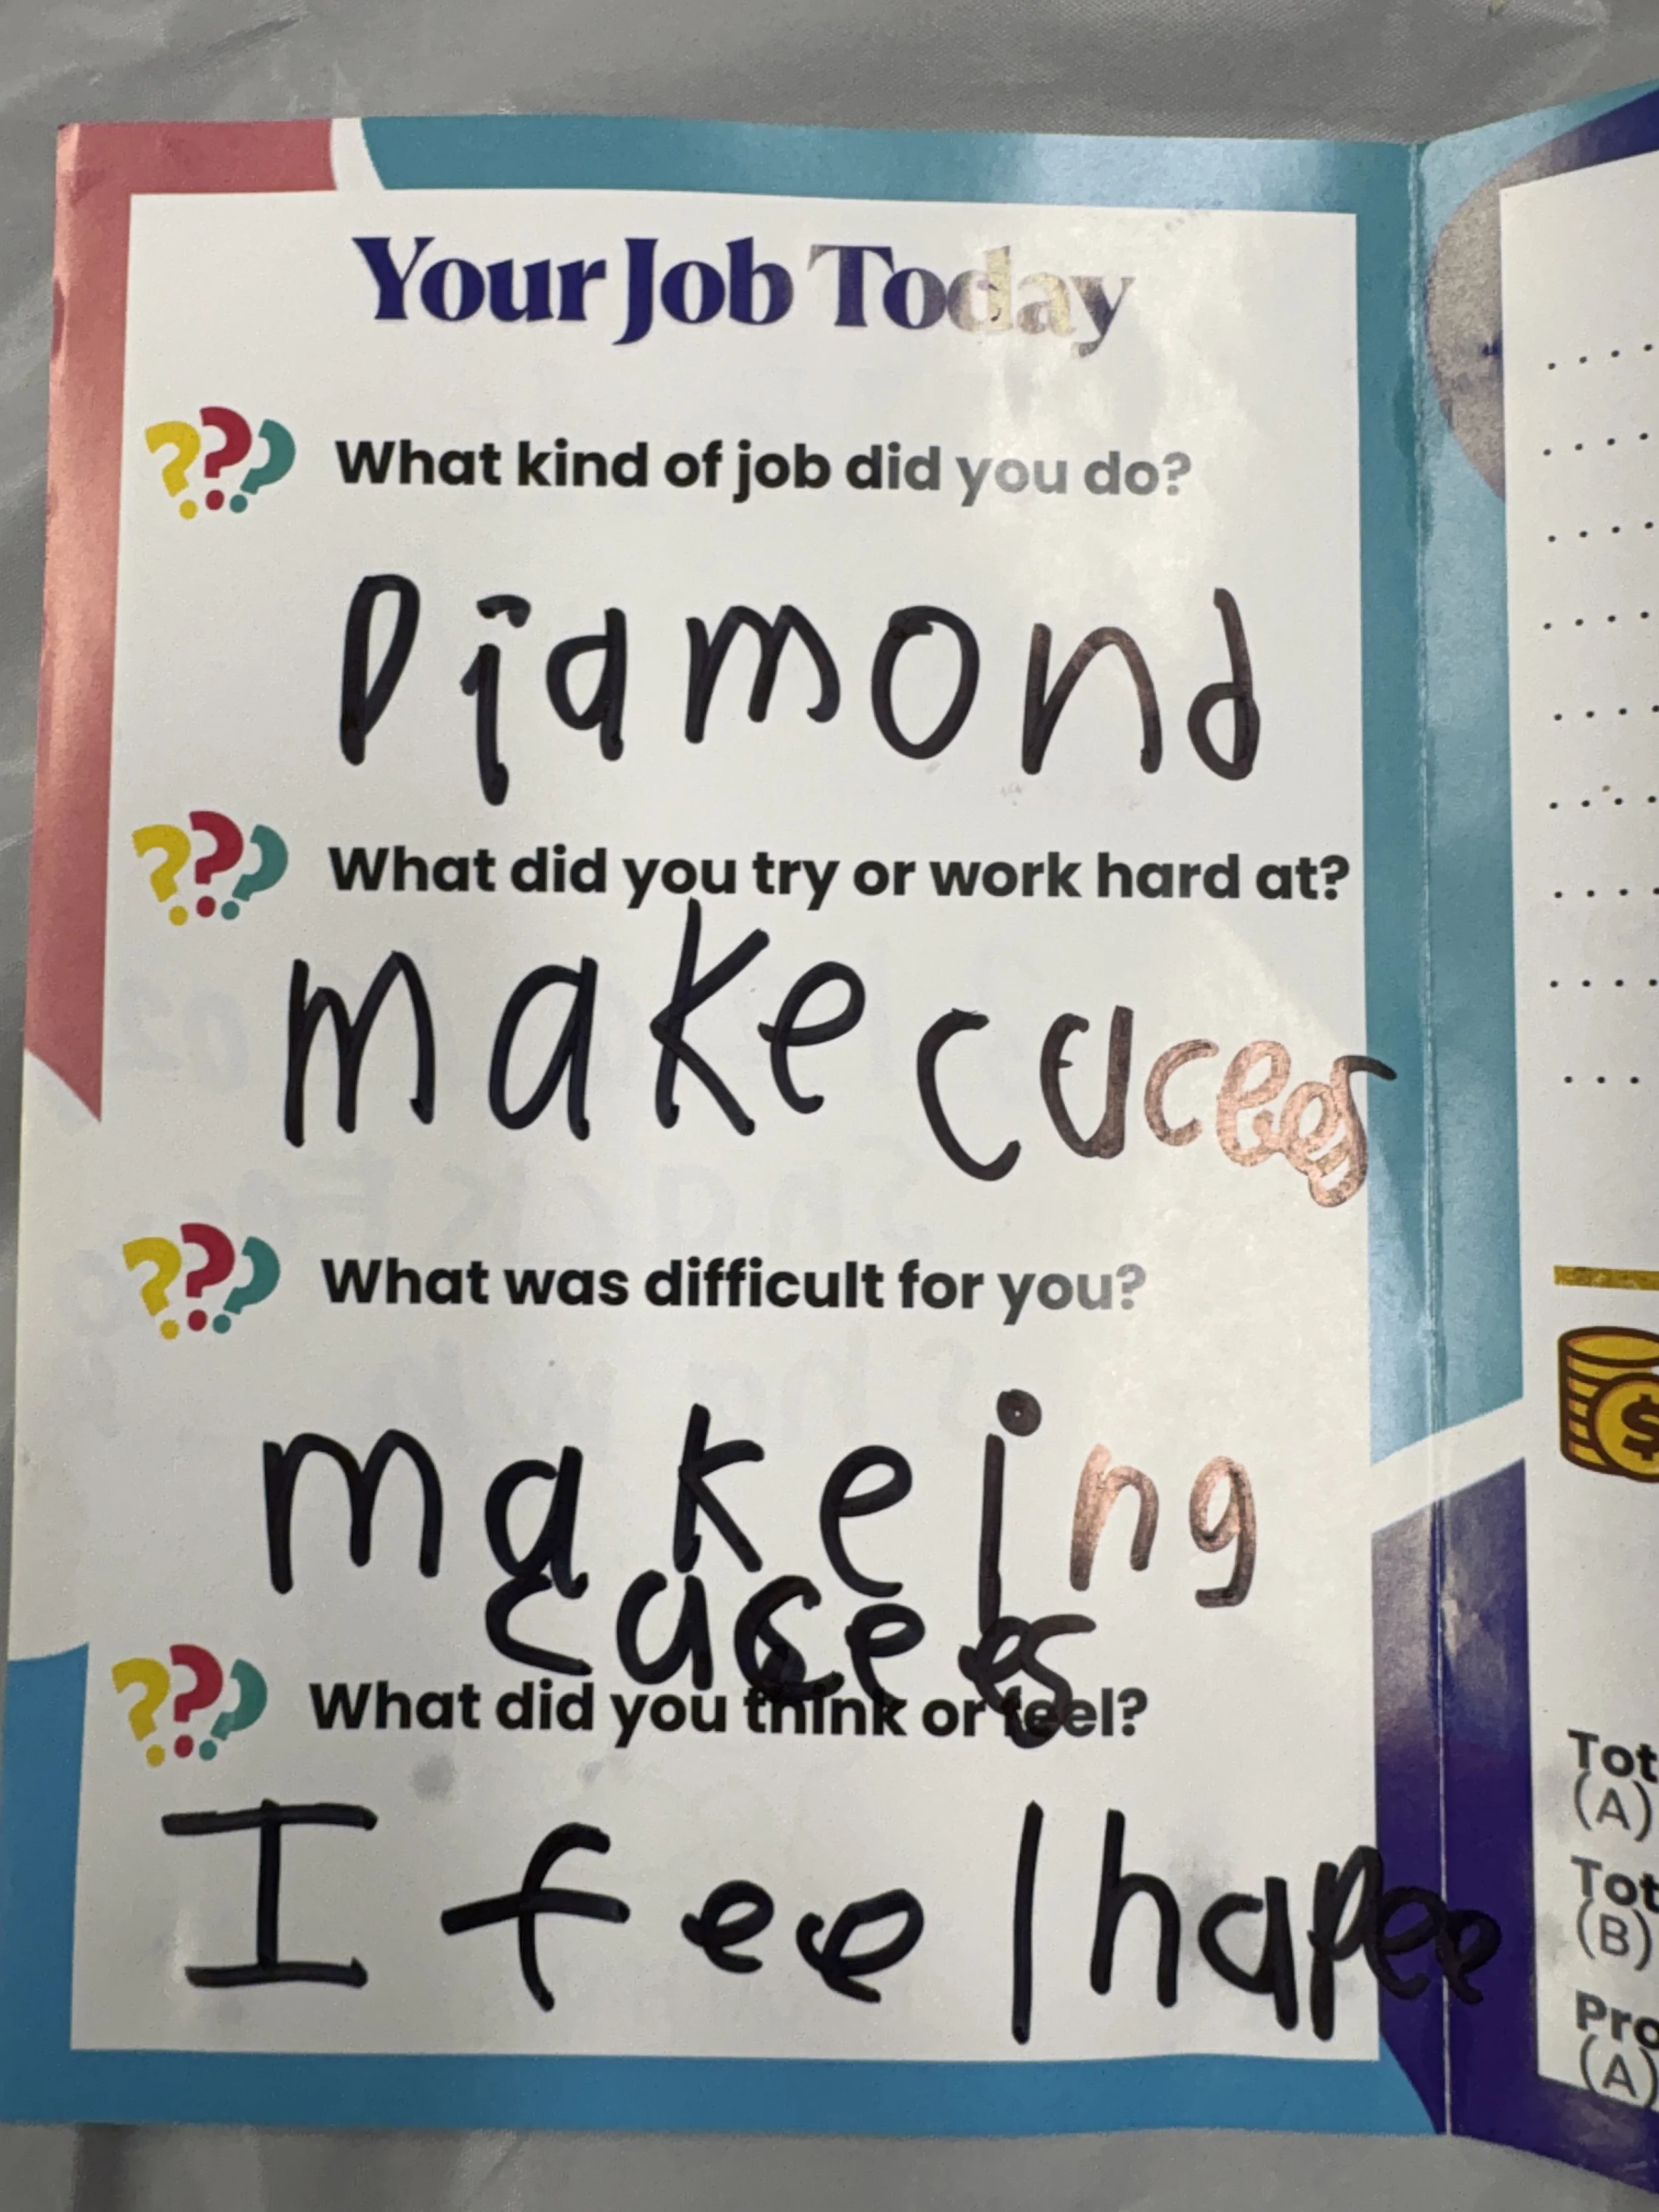 Your Job Today
??? What kind of job did you do?
Diamond
??? What did you try or work hard at?
make caces
??? What was difficult for you?
makeing
cases
??? What did you think or feel?
I feel hapee
Tot
(A)
Tot
(B)
Pro
(A)
$